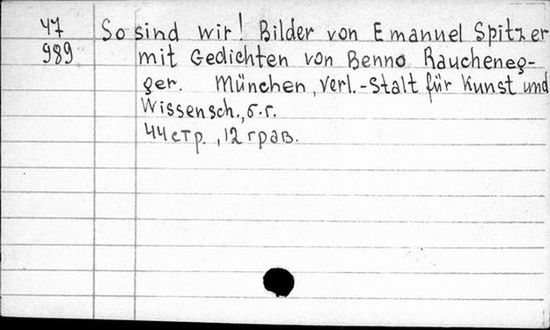 47 So sind wir! Bilder von Emanuel Spitzer
989 mit Gedichten von Benno Raucheneg-
ger. München, Verl.-Stalt für Kunst und
Wissensch., б.г.
44 стр., 12 грав.